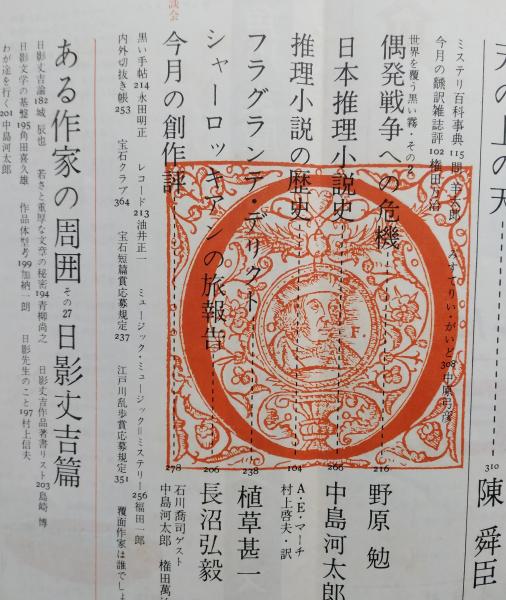 天の上の天 310 陳舜臣
ミステリ百科事典 115 間羊太郎 みすてりい・がいど 308 中原弓彦
今月の飜訳雑誌評 102 権田万治
世界を覆う黒い霧・その2
偶発戦争への危機 216 野原勉
日本推理小説史 266 中島河太郎
推理小説の歴史 164 A・E・マーチ 村上啓夫・訳
フラグランテ・デリクト 238 植草甚一
シャーロッキアンの旅報告 206 長沼弘毅
今月の創作評 278 石川喬司 ゲスト 中島河太郎 権田萬治
談会
黒い手帖 214 永田明正 レコード 213 油井正一 ミュージック・ミュージック=ミステリー 256 福田一郎
内外切抜き帳 253 宝石クラブ 364 宝石短篇賞応募規定 237 江戸川乱歩賞応募規定 351 覆面作家は誰でしょ
ある作家の周囲 その27 日影丈吉篇
日影丈吉論 182 城辰也 若さと重厚な文章の秘密 194 青柳尚之 日影丈吉作品著書リスト 203 島崎博
日影文学の基盤 195 角田喜久雄 作品体型考 199 加納一朗 日影先生のこと 197 村上信夫
わが途を行く 201 中島河太郎